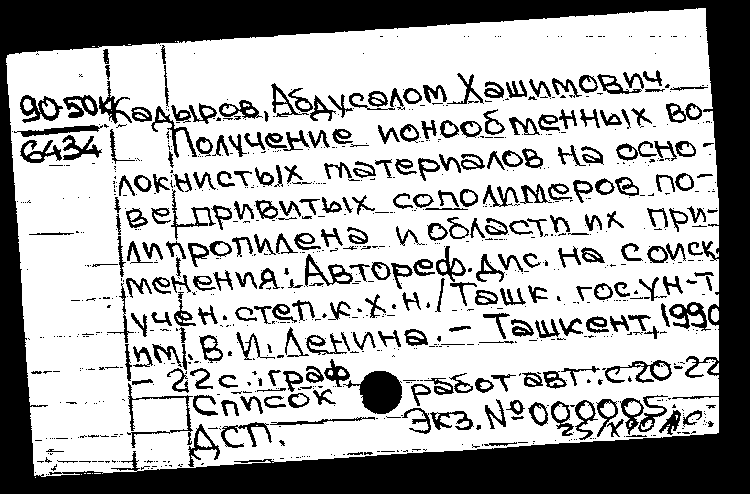 90-50к Кадыров, Абдусалом Хашимович.
6434 Получение ионообменных во-
локнистых материалов на осно-
ве привитых сополимеров по-
липропилена и области их при-
менения: Автореф. дис. на соиск.
учен. степ. к.х.н. / Ташк. гос. ун-т
им. В. И. Ленина. - Ташкент, 1990
- 22 с.: граф.
Список работ авт.: с. 20-22
ДСП. Экз. № 000005.
25/X 90